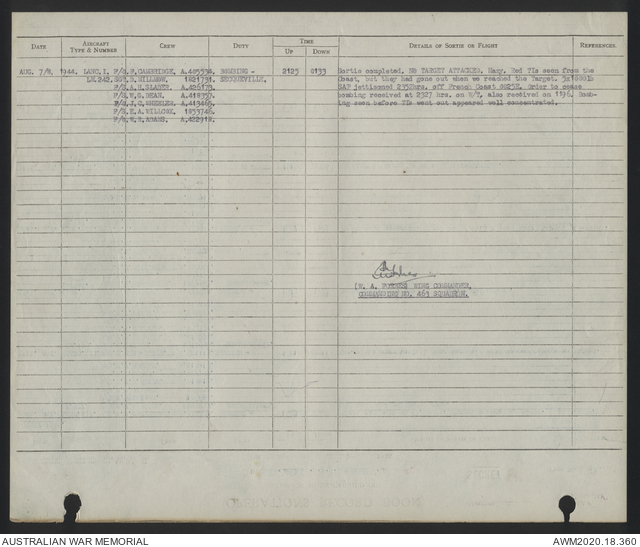 DATE AIRCRAFT TYPE & NUMBER CREW DUTY TIME UP DOWN DETAILS OF SORTIE OR FLIGHT REFERENCES
AUG. 7/8, 1944. LANC. I. F/O. CAMBRIDGE, BOMBING - 2125 0133 Sortie completed. NO TARGET ATTACKED. Many. Red TIs seen from the
SGT. 1821731. SECQUEVILLE. Coast, but they had gone out when we reached the Target. 5x1000lb
F/S. A. H. SLATER, A.426173. SAP jettisoned 2352hrs. off French Coast Order to cease
F/S. W. G. DEAN, A.418357. bombing received at 2327 hrs. on W/T, also received on 1196. Bomb-
F/S. J. O. WHEELER, A.413465. ing seen before TIs went out appeared well concentrated.
F/S. E. A. WILLCOX, 1853746.
F/S. ADAMS. A.422918.
(W. A. FORBES) WING COMMANDER,
COMMANDING NO. 463 SQUADRON.
AUSTRALIAN WAR MEMORIAL AWM2020.18.360